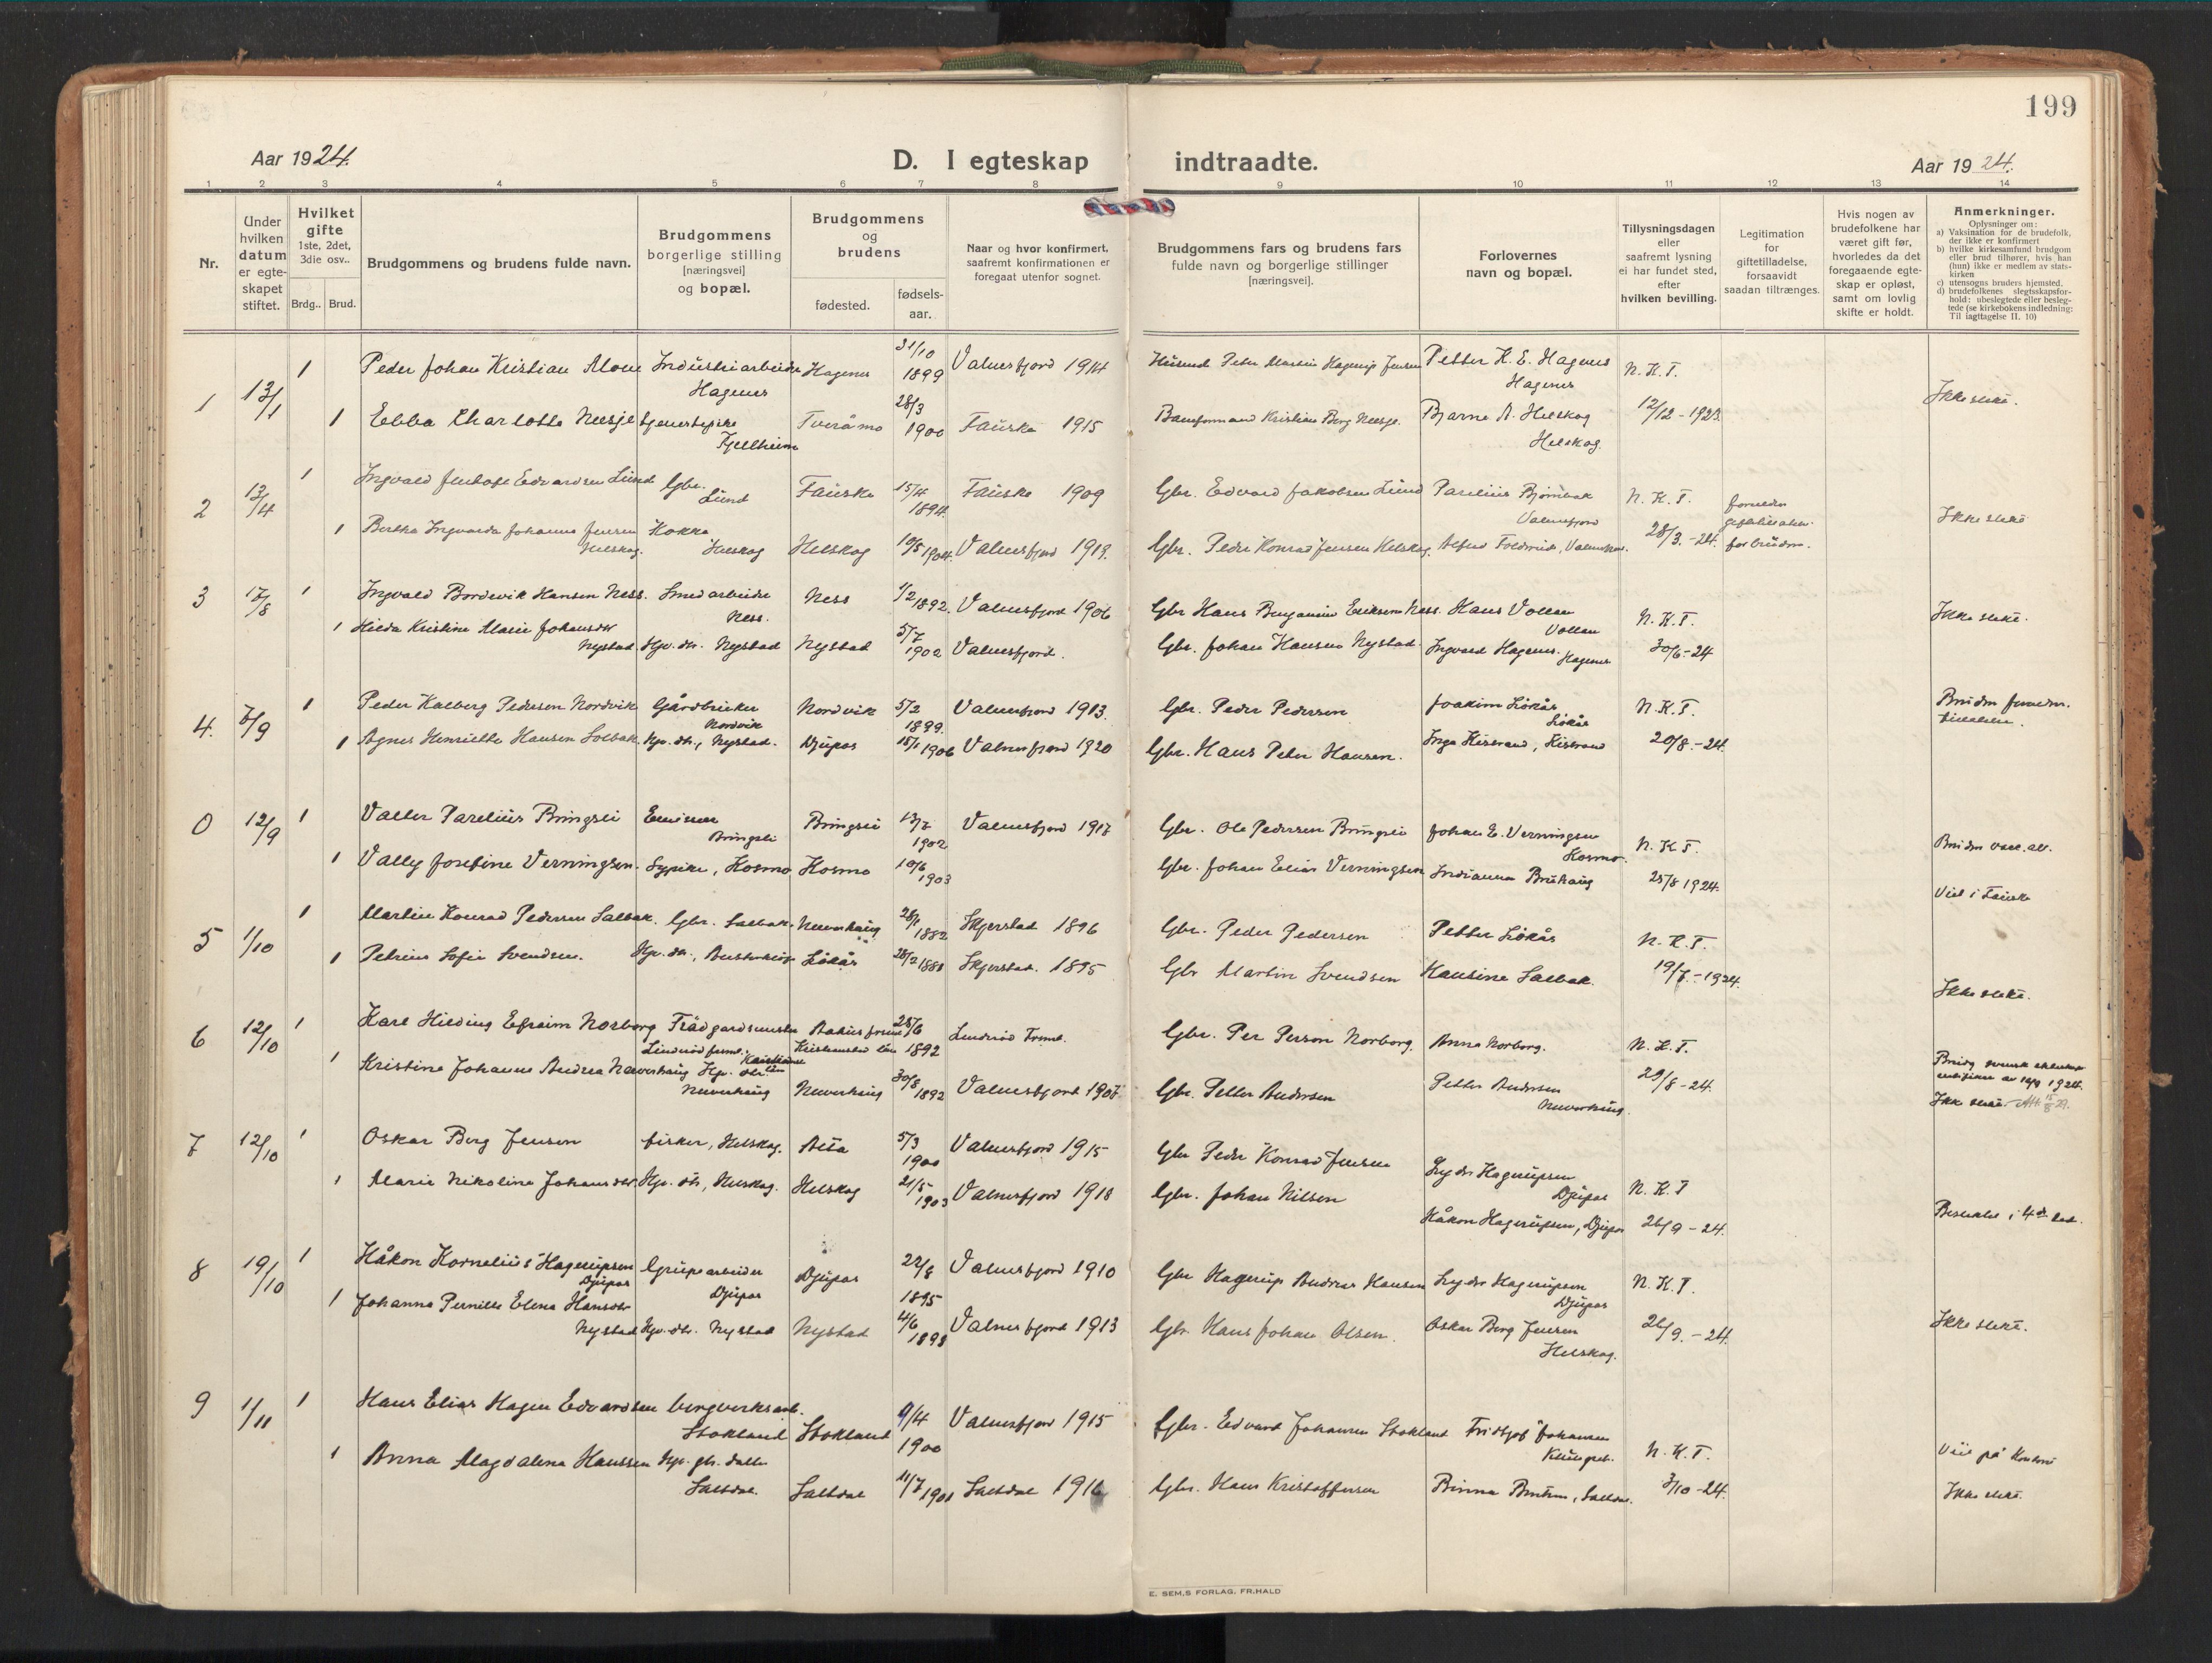 199
Aar 1924.
D. I egteskap indtraadte.
Aar 1924.
1 2 3 4 5 6 7 8 9 10 11 12 13 14
Nr.
Under hvilken datum er egte-skapet stiftet.
Hvilket gifte 1ste, 2det, 3die osv..
Brdg.. Brud.
Brudgommens og brudens fulde navn.
Brudgommens borgerlige stilling [næringsvei] og bopæl.
Brudgommens og brudens
fødested.
fødsels-aar.
Naar og hvor konfirmert, saafremt konfirmationen er foregaat utenfor sognet.
Brudgommens fars og brudens fars fulde navn og borgerlige stillinger [næringsvei].
Forlovernes navn og bopæl.
Tillysningsdagen eller saafremt lysning ei har fundet sted, efter hvilken bevilling.
Legitimation for giftetilladelse, forsaavidt saadan tiltrænges.
Hvis nogen av brudefolkene har været gift før, hvorledes da det foregaaende egte-skap er opløst, samt om lovlig skifte er holdt.
Anmerkninger.
Oplysninger om:
a) Vaksination for de brudefolk, der ikke er konfirmert
b) hvilke kirkesamfund brudgom eller brud tilhører, hvis han (hun) ikke er medlem av stats-kirken
c) utensogns bruders hjemsted.
d) brudefolkenes slegtsskapsfor-hold: ubeslegtede eller besleg-tede (se kirkebokens indledning: Til iagttagelse II. 10)
1 13/1 1 Peder Johan Kristian Moen Industriarbeider Hagenes Hagenes 31/10 1899 Valnesfjord 1914 Peter Martin Hagerup Jensen Petter K. E. Hagenes Hagenes N. K. T.
1 Ebba Charlotte Neesje tjenestepike Fjellheim Tveråmo 28/3 1900 Fauske 1915 Kristian Berg Neesje. Bjarne A. Helskog Helskog. 12/12-1923 Ikke slekt.
2 13/4 1 Ingvald Edvardsen Lund Gbr. Lund Fauske 15/4 1894. Fauske 1909 Gbr. Edvard Jakobsen Lund Parelius Bjørnbak Valnesfjord N. K. T.
1 Bertha Ingvarda Johanne Jensen Helskog. Kokke Helskog Helskog 10/5 1904. Valnesfjord 1919. Gbr. Peder Konrad Jensen Helskog. 28/3.-24. for bruden. Ikke slekt
3 17/8 1 Ingvald Bordevik Hansen Ness. Smedarbeider Ness. Ness 1/2 1892. Valnesfjord 1906 Gbr Hans Benjamin Eriksen Ness. Hans Vollan Vollan N. K. T.
1 Hilda Kristine Marie Johansdtr Nystad Hjv. dtr. Nystad Nystad 5/7 1902 Valnesfjord. Gbr. Johan Hansen Nystad. Ingvard Hagenes. Hagenes 30/6-24 Ikke slekt.
4. 7/9 1 Peder Kalberg Pedersen Nordvik Gårdbruker Nordvik Nordvik 5/2 1899. Valnesfjord 1913. Gbr. Peder Pedersen Joakim Løkås Løkås N. K. T.
1 Agnes Henriette Hansen Solbak. Hjv. dtr., Nystad. Djupos 15/1 1906 Valnesfjord 1920 Gbr. Hans Peter Hansen. Inga Kistrand, Kistrand 20/8.-24.
0 12/9 1 Valter Parelius Bringsli Bringsli Bringsli 13/7 1902 Valnesfjord 1917 Gbr. Ole Pedersen Bringsli Johan E. Verningsen Kosmo. N. K T.
1 Vally Josefine Verningsen. Sypike, Kosmo Kosmo 10/6 1903 Gbr. Johan Elias Verningsen Indianna Bruhaug 25/8 1924. Viet i Fauske
5 1/10 1 Martin Konrad Pedersen Salbak. Gbr. Salbak. Neverhaug 28/1 1882 Skjerstad 1896 Gbr. Peder Pedersen Petter Løkås N. K. T.
1 Petrine Sofie Svendsen. Hjv. dtr., Løkås 1881 Skjerstad. 1895 Gbr Martin Svendsen Hansine Salbak. 19/7.-1924. Ikke slekt.
6 12/10 1 Karl Hilding Efraim Norborg Trädgardsmester Kristianstad län 28/6 1892 Gbr. Per Person Norborg. Anna Norborg. N. K. T.
1 Kristine Johanne Andrea Neverhaug Hjv. dtr. Neverhaug Neverhaug 30/8 1892 Valnesfjord Gbr. Petter Andersen Petter Andersen Neverhaug. 29/8-24. Ikke slekt.
7 12/10 1 Oskar Berg Jensen fisker, Helskog. Alta 5/3 1900 Valnesfjord 1915 Gbr Peder Konrad Jensen Lyder Hagerupsen Djupos N. K. T
1 Marie Nikoline Johansdtr. Hjv. dtr., Helskog. Helskog 21/5 1903 Valnesfjord 1918 Gbr. Johan Nilsen Håkon Hagerupsen, Djupos 26/9-24. Beslektet i 4de led.
8 19/10 1 Håkon Kornelius Hagerupsen Djupos Grubearbeider Djupos Djupos 22/8 1895 Valnesfjord 1910 Gbr Hagerup Andreas Hansen Lyder Hagerupsen Djupos N. K. T.
1 Johanna Pernille Elena Hansdtr Nystad Hjv. dtr. Nystad Nystad 4/6 1898 Valnesfjord 1913 Gbr. Hans Johan Olsen. Oskar Berg Jensen Helskog. 26/9.-24. Ikke slekt.
9 1/11 1 Hans Elias Hagen Edvardsen bergverksarb. Stokland Stokland 9/4 1900 Valnesfjord 1915 Gbr. Edvard Johansen Stokland Fridtjof Johansen N. K. T.
1 Anna Magdalena Hanssen Saltdal. Saltdal 11/7 1901 Saltdal 1916 Gbr. Hans Kristoffersen 3/10-24. Ikke slekt.
E. SEM,S FORLAG, FR.HALD